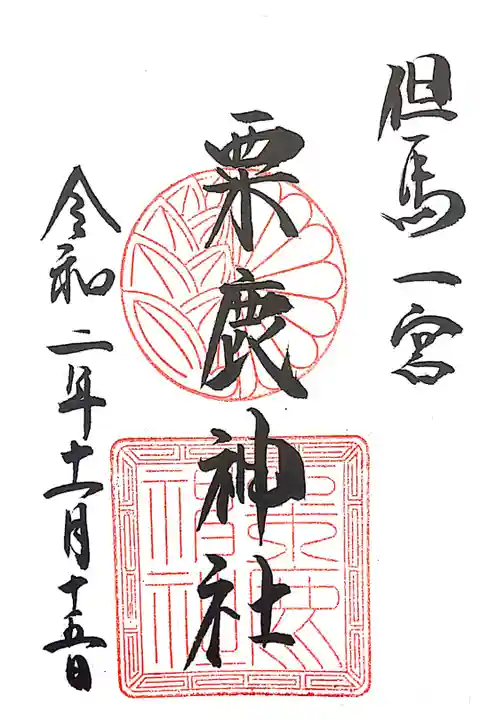 但馬一宮
粟鹿神社
令和二年十一月十五日
粟鹿
神社